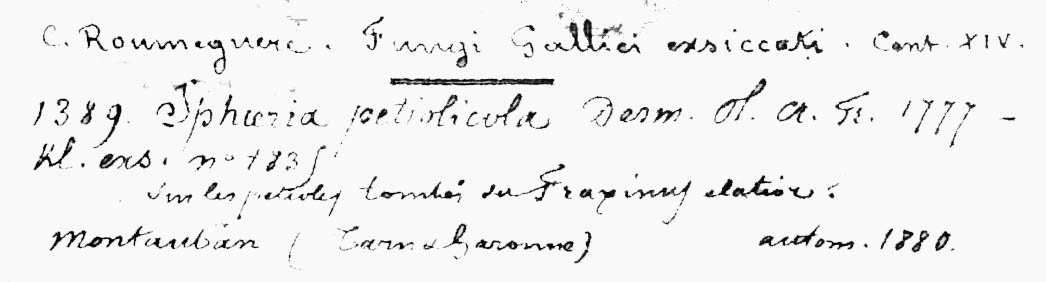 C. Roumeguere. Fungi Gallici exsiccati. Cent. XIV.
1389. Sphæria petiolicola Desm. Pl. Cr. Fr. 1777 -
Kl. exs. n° 1835
Sur les petioles tombés du Fraxinus elatior.
Montauban (Tarn & Garonne) autom. 1880.